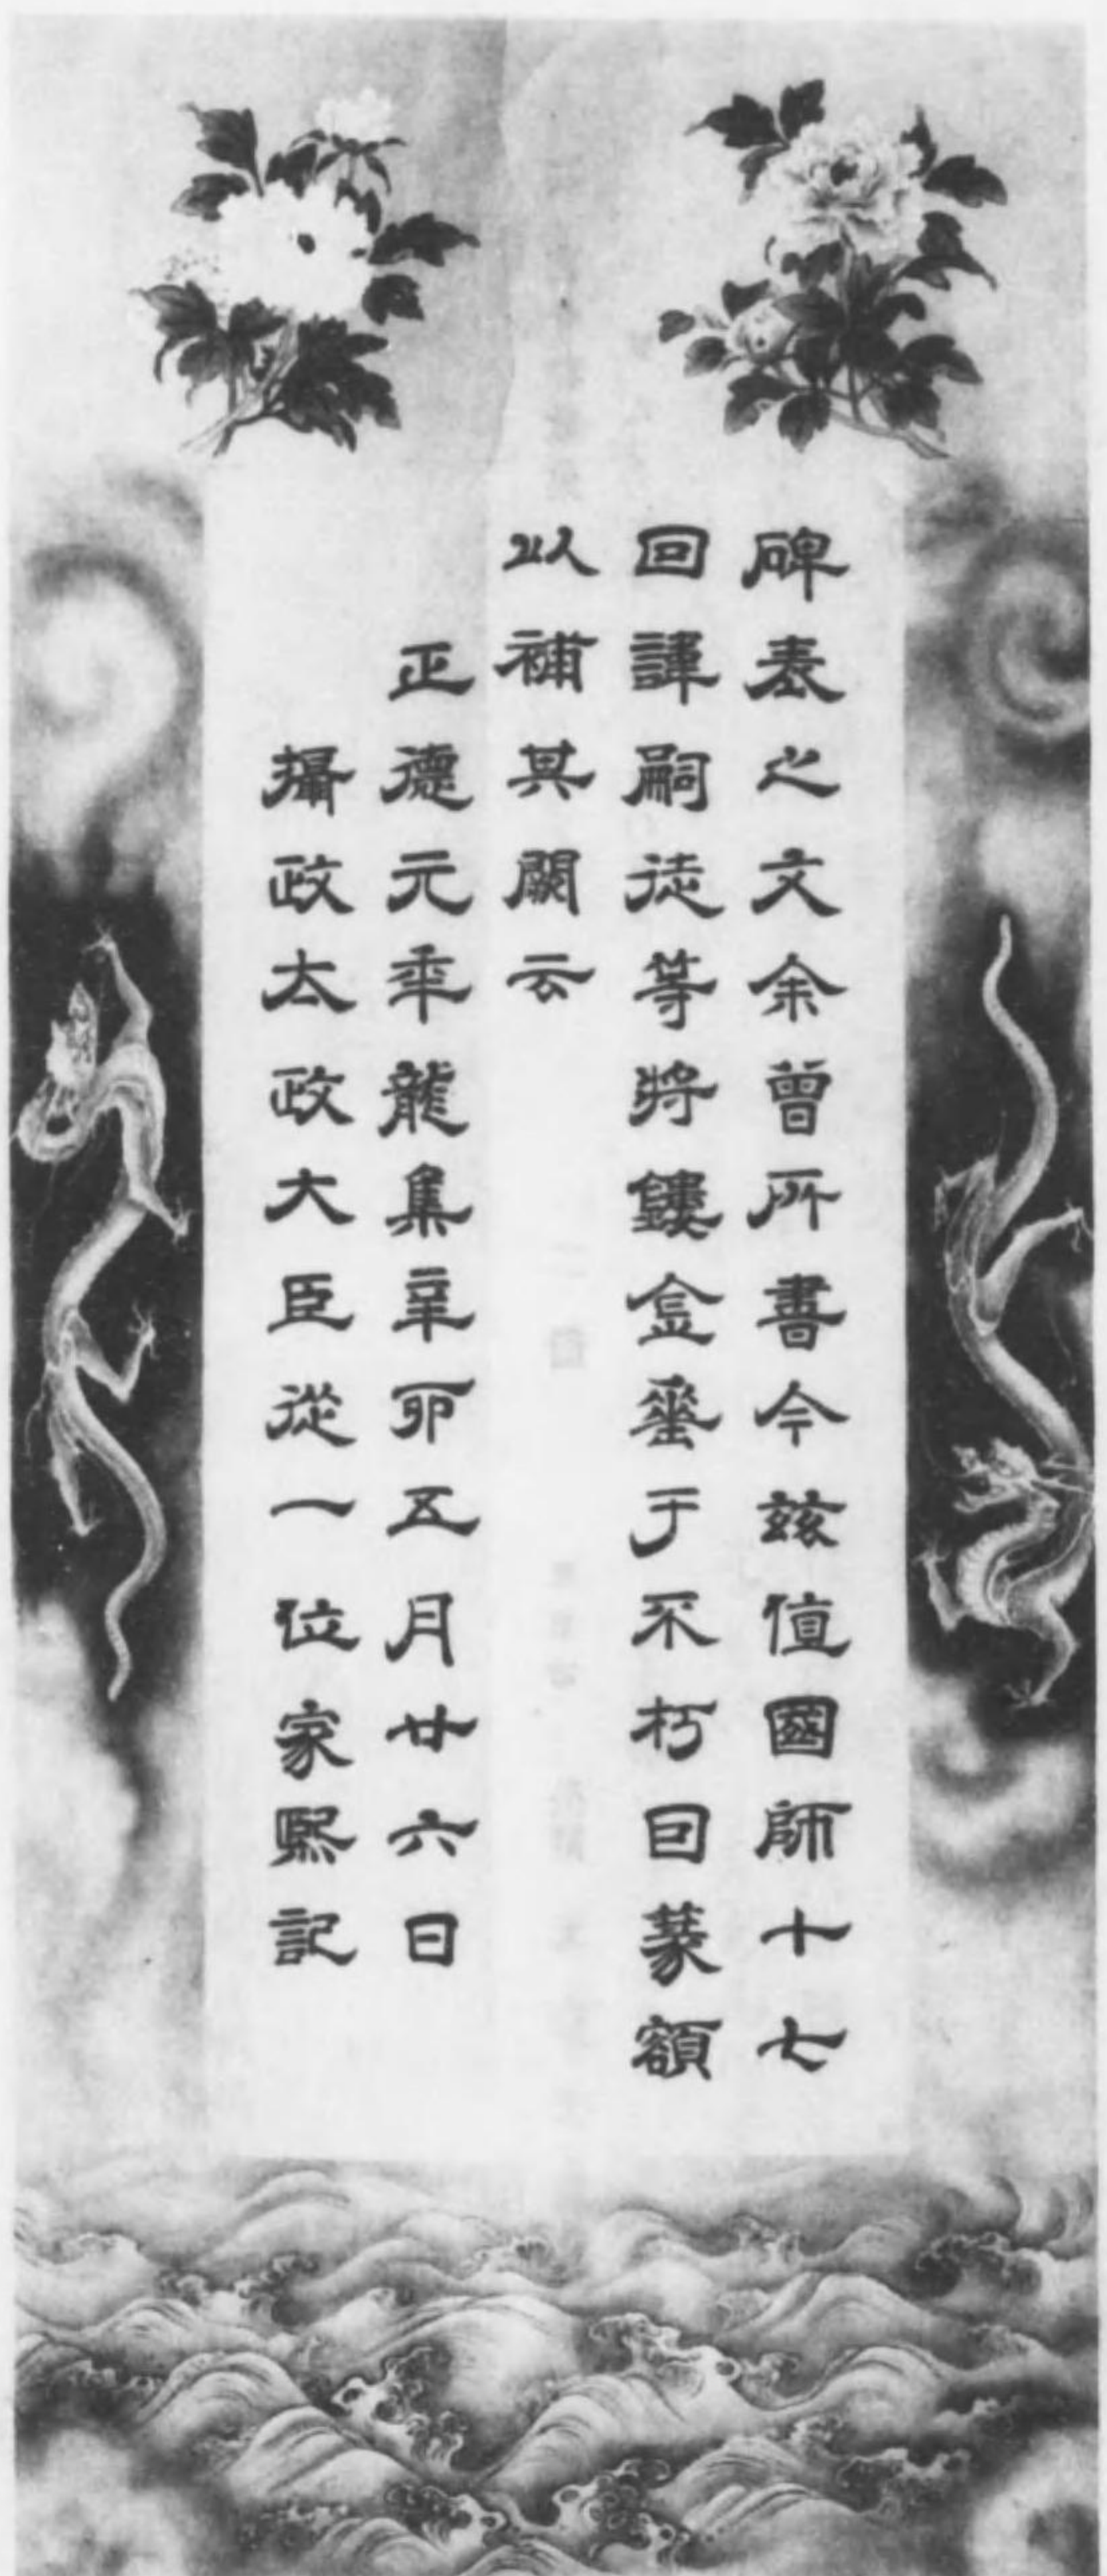 碑表之文余曾所書今兹值國師十七
回諱嗣徒等將鏤金垂于不朽囙篆額
以補其闕云
正德元年龍集辛卯五月廿六日
攝政太政大臣從一位家熈記